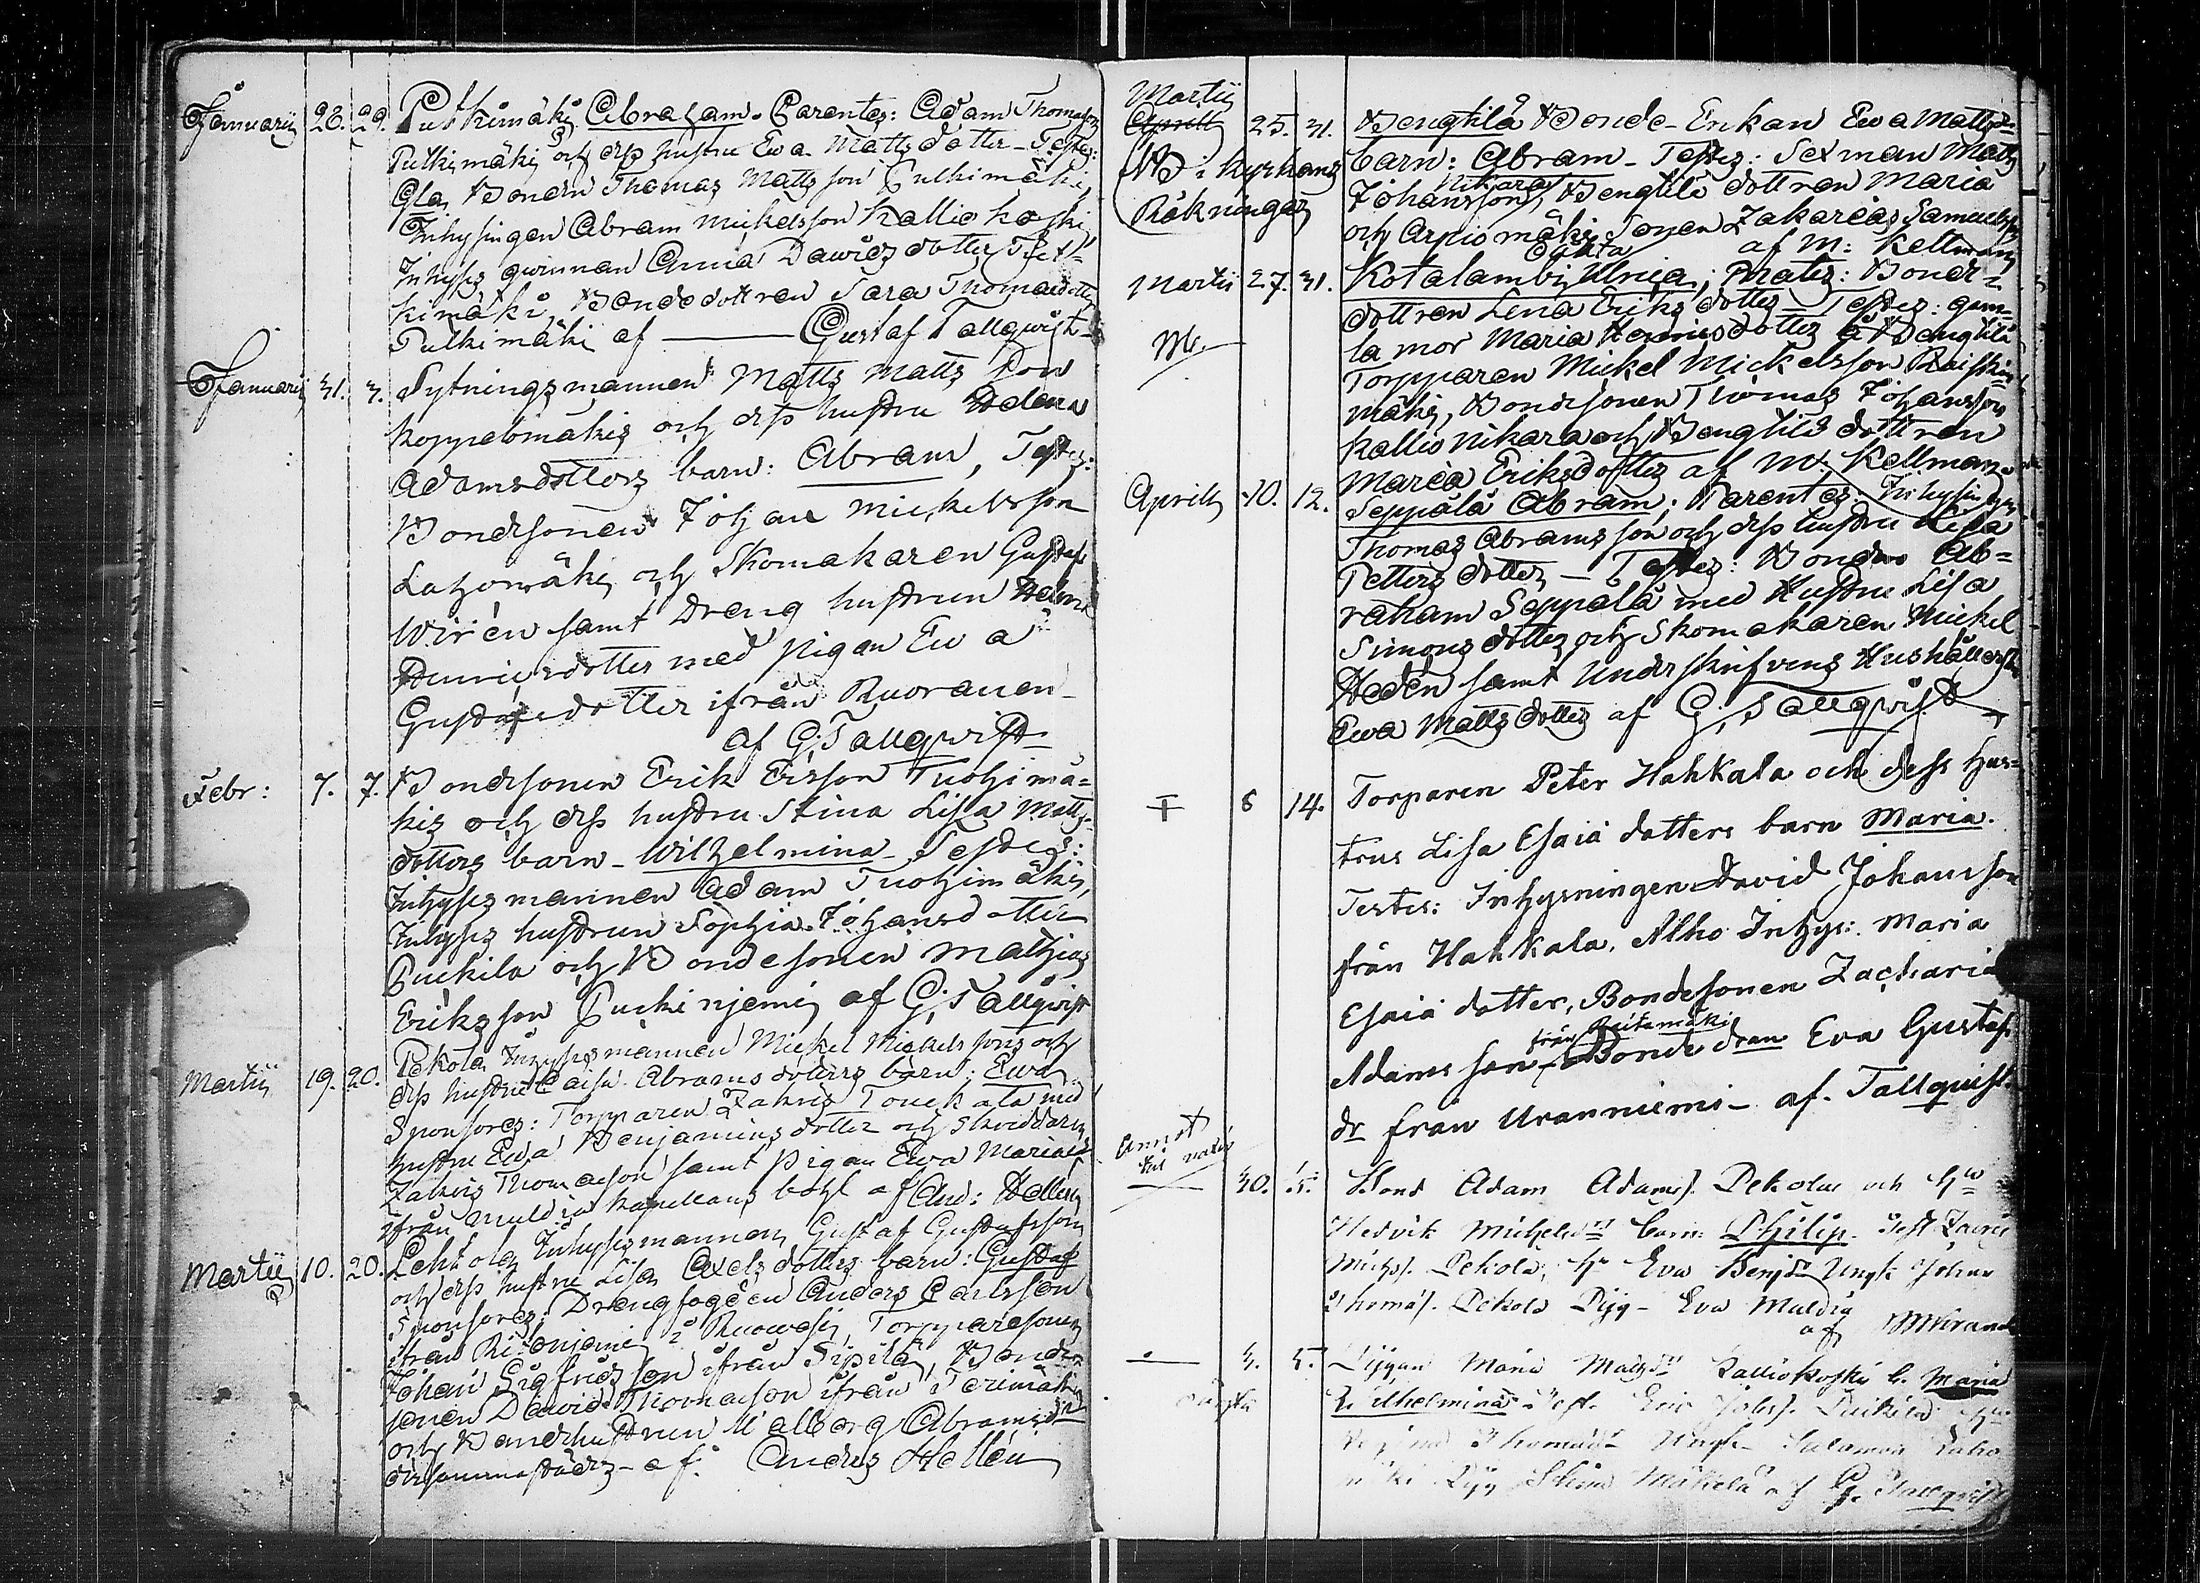 Januarij 28. 29. Putkimäki Abraham. Parentes: Adam Thomasson
Putkimäki och dess hustru Eva Mattsdotter - Testes:
Gla. Bonden Thomas Matts son Putkimäki,
Inhysingen Abram Mickelsson Kalliokoski
Inhyses qwinnan Anna Dawidsdotter Putkimäki, Bondedottren Sara Thomædotter
Putkimäki af — Gustaf Tallqwist
Januarij 31. 3. Sytningsmannen Matts Matts son
Koppelomäkis och dess hustru Helena
Adamsdotters barn: Abram, Testes:
Bondesonen Johan Mickelsson
Latzomäki och Skomakaren Gustaf
Wirén samt Dreng hustrun Helena
Henricsdotter med pigan Eva
Gustafsdotter ifrån Ruoranen
af G. Tallqwist
Febr: 7. 7. Bondesonen Erik Ersson Tuohimä-
kis och dess hustru Stina Lisa Matts-
dotters barn - Wilhelmina - Testes:
Inhysesmannen Adam Tuohimäki,
Inhyses hustrun Sophia Johansdotter
Puikila och Bondesonen Mathias
Eriksson Puikinjemi af G. Tallqwist
Martii 19. 20. Pekola Inhysesmannen Mickel Mickelssons och
dess hustru Caisa Abrams dotters barn: Ewa
Sponsores: Torpparen Zakris Toukola med
hustru Eva Benjamins dotter och Skräddaren
Zakris Thomasson samt Pigan Ewa Mariæ
ifrån Muldia Kapellans bohl af And: Hellén
Martii 10. 20. Lehtola Inhysesmannen Gustaf Gustafsson
och dess hustru Lisa Axels dotters barn: Gustaf
Sponsores: Drengfogden Anders Carlsson
ifrån Ristinjemi i Ruowesi, Torpparesonen
Johan Sigfridsson ifrån Sipilä, Bonde-
sonen David Thomasson ifrån
och Bondhustrun Walborg Abramsdr
dersammastädes - af. Anders Hellén
Martii
Aprilly 25. 31. Bengtilä Bonde-Enkan Ewa Matts-
NB i Kyrkans barn: Abram - Testes: Sexman Matts
Räkningar Johansson Nikara, Bengtilä dottren Maria
och Arpiomäki Sonen Zakarias Samuelsson
af M: Kellman
Martii 27. 31. Kotalambi Ulrica; Mater: Bonde-
oäkta
dottren Lena Eriksdotter Testes: gam-
la mor Maria Henricsdotter å Bengtilä
Torpparen Mickel Mickelsson Raiskin-
mäki, Bondesonen Thomas Johansson
Kallio Nikara och Bengtilä dottren
Maria Eriksdotter af M Kellman
Aprilly 10. 12. Seppälä Abram; Parentes: Inhysingen
Thomas Abrams son och dess hustru Lisa
Petters dotter - Testes: Bonden Ab-
raham Seppälä med Hustru Lisa
Simons dotter och Skomakaren Mickel
Hedén samt Underskrifvens Hushållerska
Ewa Mattsdotter af G. Tallqwist
6 14. Torparen Peter Hahkala och dess hus-
trus Lisa Esaiä dotters barn Maria.
Testes: Inhysningen David Johansson
från Hahkala, Alho Inhys: Maria
Esaiä dotter, Bondesonen Zacharia
Adams son från Reitamäki Bonde dran Eva Gustaf
dr från Uranniemi - af. Tallquist
30. 5. Bond Adam Adamss. Pekolas och hu
Hedvik Michelsdr barn: Philip. Test. Zacris
Michss. Pekola, hu Eva Benjdr Ungk Johan
Thomass. Pekola Pig - Eva Muldia
af
3. 5. Pigan Maria Mattsdr Kalliokoski b. Maria
oäkta Wilhelmina Test. Eric Johss. Puikila hu
Thomædr Ungk Salamon Laho-
mäki Pig Stina Mäkelä af G. Tallqvist